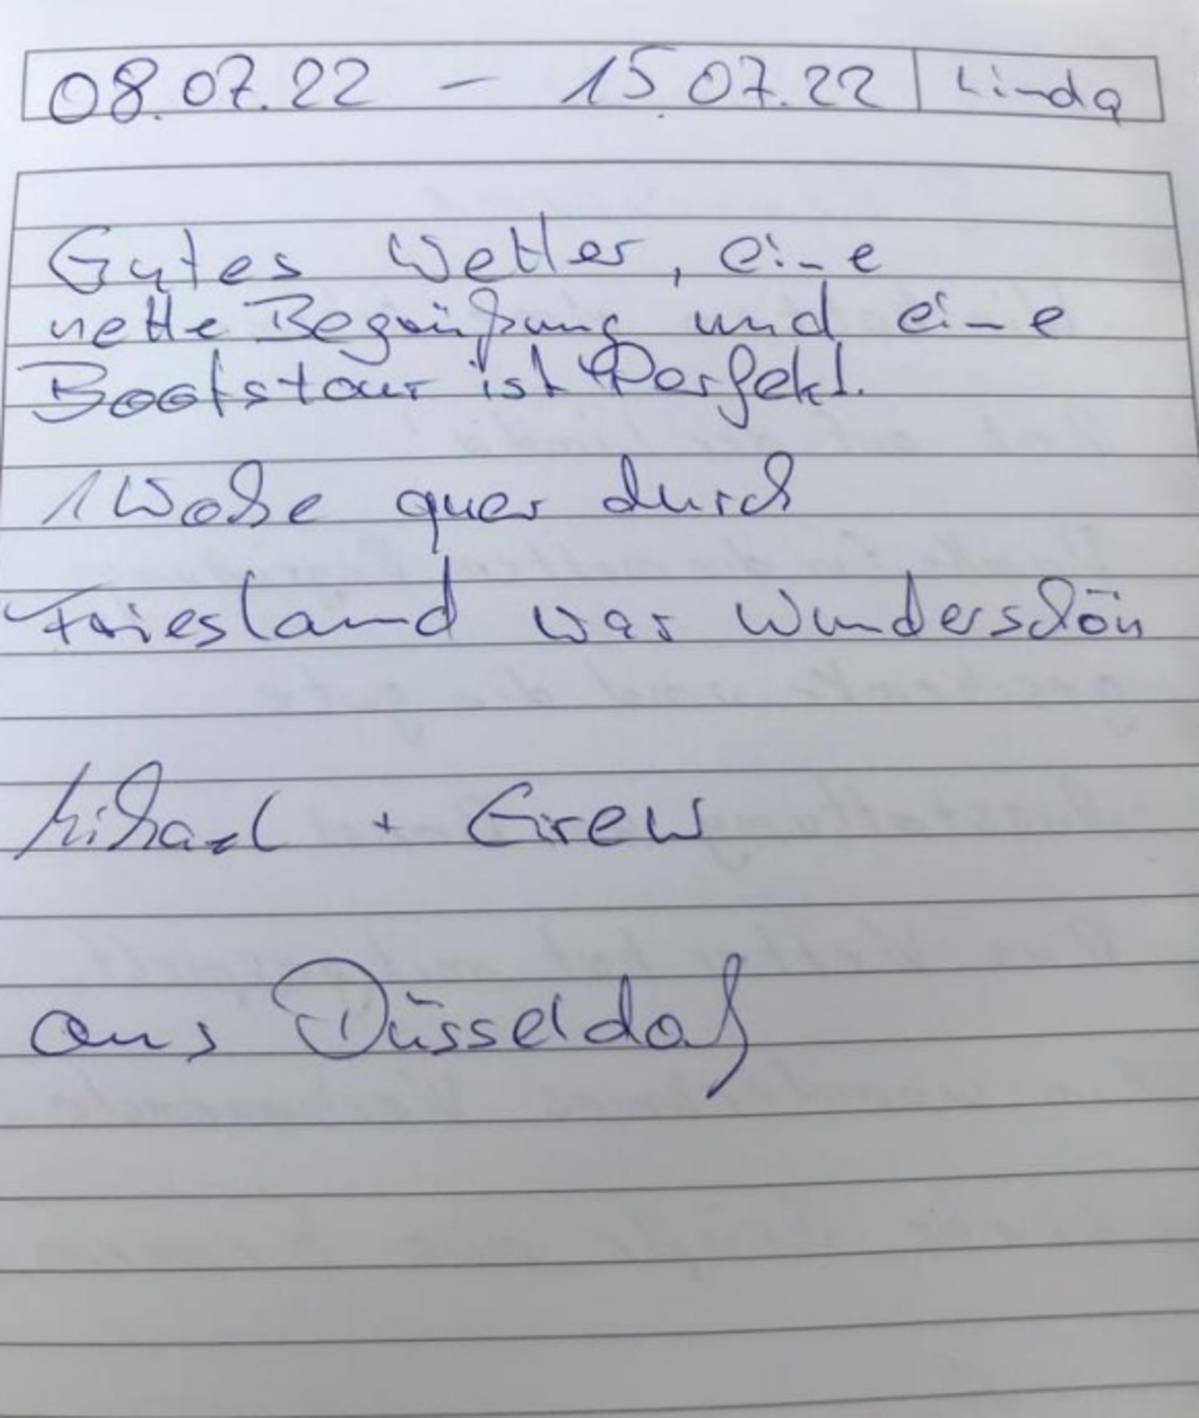 08.07.22 - 15.07.22 Linda
Gutes Wetter, eine
nette Begrüßung und eine
Bootstour ist Perfekt.
1 Woche quer durch
Friesland war wunderschön
Michael + Crew
aus Düsseldorf